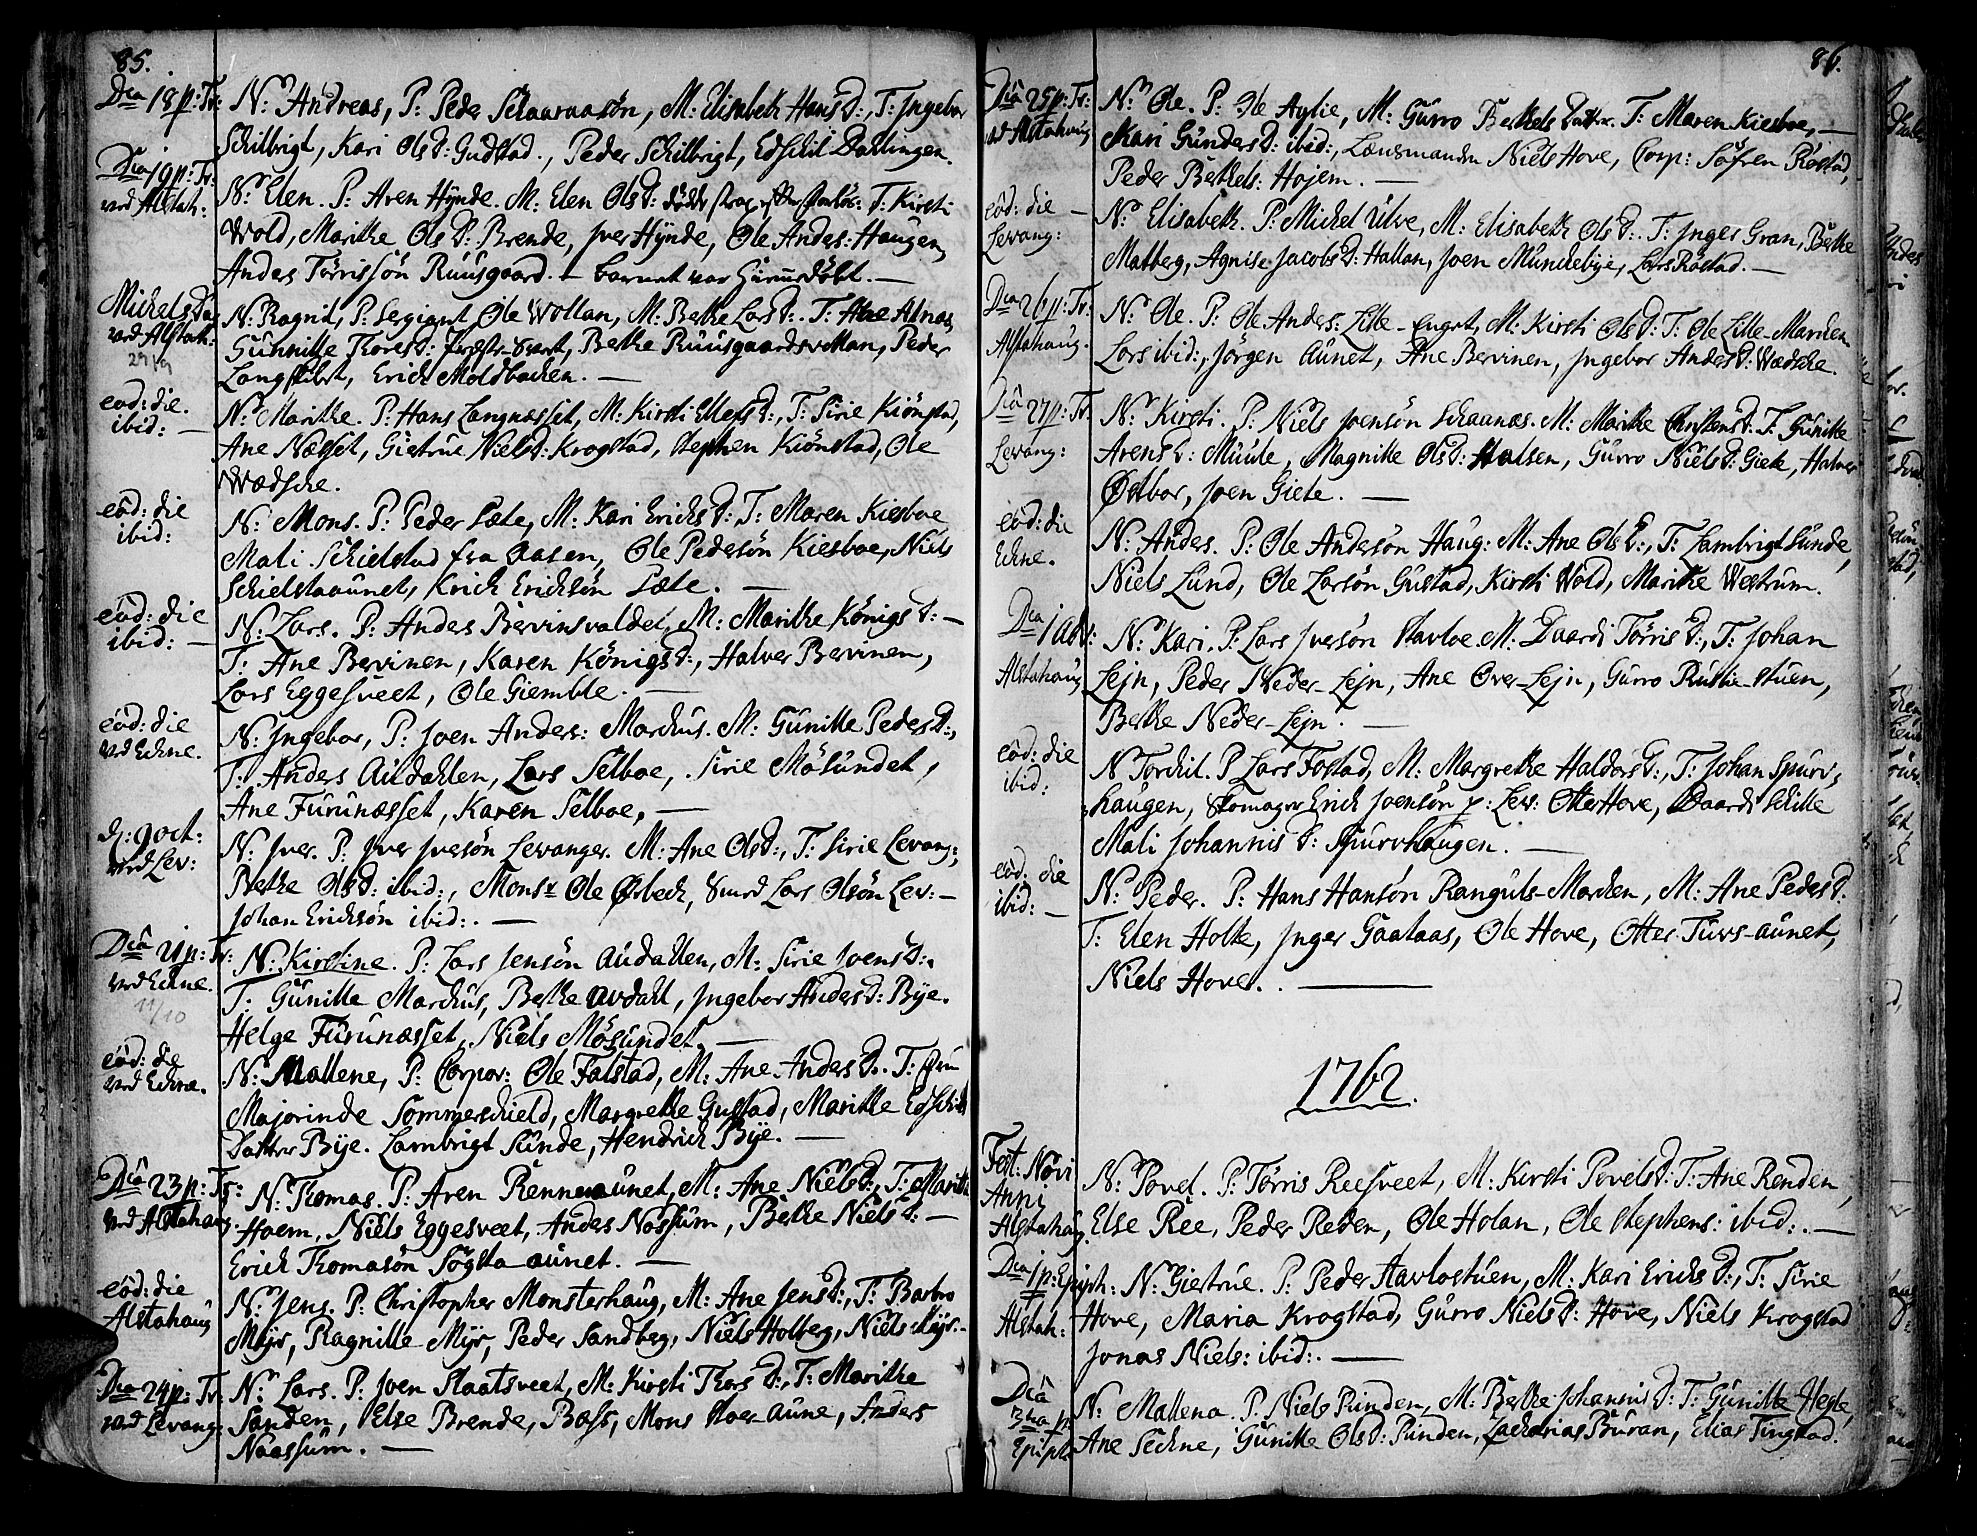 85.
Dca 18 p: Tr: N: Andreas, P: Peder Schaaraasön, M: Elisabeth Hans D:, T: Ingebor
Schilbrigt, Kari Ols D: Gudstad., Peder Schilbrigt, Edschil Dahlingen.
Dca 19 p: Tr:
ved Alstah: N: Elen. P: Aren Hÿnde. M: Elen Ols D: T: Kirsti
Wold, Marithe Ols D: Brende, Iver Hÿnde, Ole Anders: Haugen,
Anders Törrissön Ruusgaard. — barnet var hiemedöbt. —
Michels Dag
ved Alstah:
29/9
N: Ragnil, P: Sergiant Ole Wollan, M: Berthe Lars D:. T: Ane Alnæs,
Gunnille Thores D: Berthe Ruusgaardsvollan, Peder
Langstibst, Erich Moldbachen. —
eod: die.
ibid: —
N: Marithe. P: Hans Langnæsset, M: Kirsti Ellefs D:, T: Sirie Kiönstad,
Ane Næsset, Giertrue Niels D: Krogstad, Stephen Kiönstad, Ole
Wædsche.
eod: die
ibid:
N: Mons. P: Peder Læte, M: Kari Erichs D: T: Maren Kiesboe
Mali Schielstad fra Aasen, Ole Pedersön Kiesboe, Niels
Schielstaaunet, Erich Erichsön Læte. —
eod: die
ibid: —
N: Lars. P: Anders Bervinsvaldet, M: Marithe Königs D: —
T: Ane Bervinen, Karen Königs D:, Halver Bervinen,
Lars Eggesveet, Ole Giemble. —
eod: die
ved Echne.
N: Ingebor, P: Joen Anders: Marchus. M: Gunille Peders D:,
T: Anders Audahlen, Lars Selboe, Sirie Mösundet,
Ane Furunæsset, Karen Selboe, —
d: 9 oct:
ved Lev:
N: Iver. P: Iver Iversön Levanger. M: Ane Ols D:, T: Sirie Levang:,
Berthe Ols D: ibid:, Monsr Ole Ørbech, Smed Lars Olsön Lev: —
Johan Erichsön ibid:. —
Dca 21 p: Tr:
ved Echne.
11/10
N: Kirstine. P: Lars Jensön Audahlen, M: Sirie Joens D:.
T: Gunille Marchus, Berthe Avdahl, Ingebor Anders D: Bÿe.
Helge Furunæsset, Niels Mösundet. —
eod: die
ved Echne.
N: Mallene, P: Corpor: Ole Falstad, M: Ane Anders D:. T: Fru
Majorinde Sommerschield, Margrethe Gustad, Marithe Edschils
Datter Bÿe. Lambrigt Sunde, Hendrich Bÿe. —
Dca 23 p: Tr:
ved Alstahaug.
N: Thomas. P: Aren Rennemaunet, M: Ane Niels D:, T: Marith
Hoem, Niels Eggesveet, Anders Nossum, Berthe Niels D: —
Erich Thomasön Sögsta aunet. —
eod: die
Alstahaug
N: Jens. P: Christopher Monsterhaug, M: Ane Jens D:, T: Barbro
Mÿr, Ragnille Mÿr, Peder Sandberg, Niels Holberg, Niels Mÿr. —
Dca 24 p: Tr:
ved Levang:
N: Lars. P: Joen Slaatsveet, M: Kirsti Thors D:, T: Marithe
Sanden, Else Brende, Bass, Mons Stoer-aune, Anders
Naassum. —
86.
Dca 25 p: Tr:
ved Alstahaug
N: Ole. P: Ole Aglie, M: Gurro Berthels Datter. T: Maren Kiesboe, —
Mari Gunders D: ibid:, Lænsmanden Niels Hove, Corp: Söfren Röstad,
Peder Berthels: Hojem. —
eod: die —
Levang:
N: Elisabeth. P: Michel Ulve, M: Elisabeth Ols D:. T: Inger Gran, Berthe
Matberg, Agnise Jacobs D: Hallan, Joen Munchebÿe, Lars Röstad. —
Dca 26 p: Tr:
Alstahaug.
N: Ole. P: Ole Anders: Lille-Enget, M: Kirsti Ols D: T: Ole Lille-Marchen
Lars ibid:, Jörgen Aunet, Ane Bervinen, Ingebor Anders D: Wædsche.
Dca 27 p: Tr.
Levang:
N: Kirsti. P: Niels Joensön Schaanæs. M: Marithe Christens D: T: Gunille
Arens D: Muule, Magnille Ols D: Halsen, Gurro Niels D: Giete, Halver
Østbor, Joen Giete. —
eod: die
Echne.
N: Anders. P: Ole Andersön Haug: M: Ane Ols D:, T: Lambrigt Sunde,
Niels Lund, Ole Larsön Gustad, Kirsti Wold, Marithe Westrum.
Dca 1 Adv:
Alstahaug
N: Kari. P: Lars Iversön Stavloe. M: Baardi Törris D:, T: Johan
Lejn, Peder Neder-Lejn, Ane Over-Lejn, Gurro Rustie-stuen,
Berthe Neder-Lejn. —
eod: die
ibid:
N: Torchil. P: Lars Fostad, M: Margrethe Haldors D:, T: Johan Spurv,
haugen, Skomager Erich Joensön p: Lev: Otter Hove, Baardi Schille
Mali Johannis D: Spurvhaugen. —
eod: die
ibid: —
N: Peder. P: Hans Hansön Ranguls-Marchen, M: Ane Peders D:
T: Elen Holte, Inger Gaalaas, Ole Hove, Otter Tuvs-aunet,
Niels Hove. . —
1762.
Fest: Novi
Anni
Alstahaug.
N: Povel. P: Törris Reesveet, M: Kirsti Povels D: T: Ane Renden,
Else Ree, Peder Reden, Ole Holan, Ole Stephens: ibid:. —
Dca 1 p: Epiph:
Alstah:
N: Giertrue. P: Peder Stavlostuen, M: Kari Erichs D:, T: Sirie
Hove, Maria Krogstad, Gurro Niels D: Hove, Niels Krogstad
Jonas Niels: ibid:. —
Dca
3tia p:
Epiph:
N: Mallena. P: Niels Punden, M: Berthe Johannis D: T: Gunille Hegle,
Ane Sechne, Gunille Ols D: Punden, Zacharias Buran, Elias Tingstad.